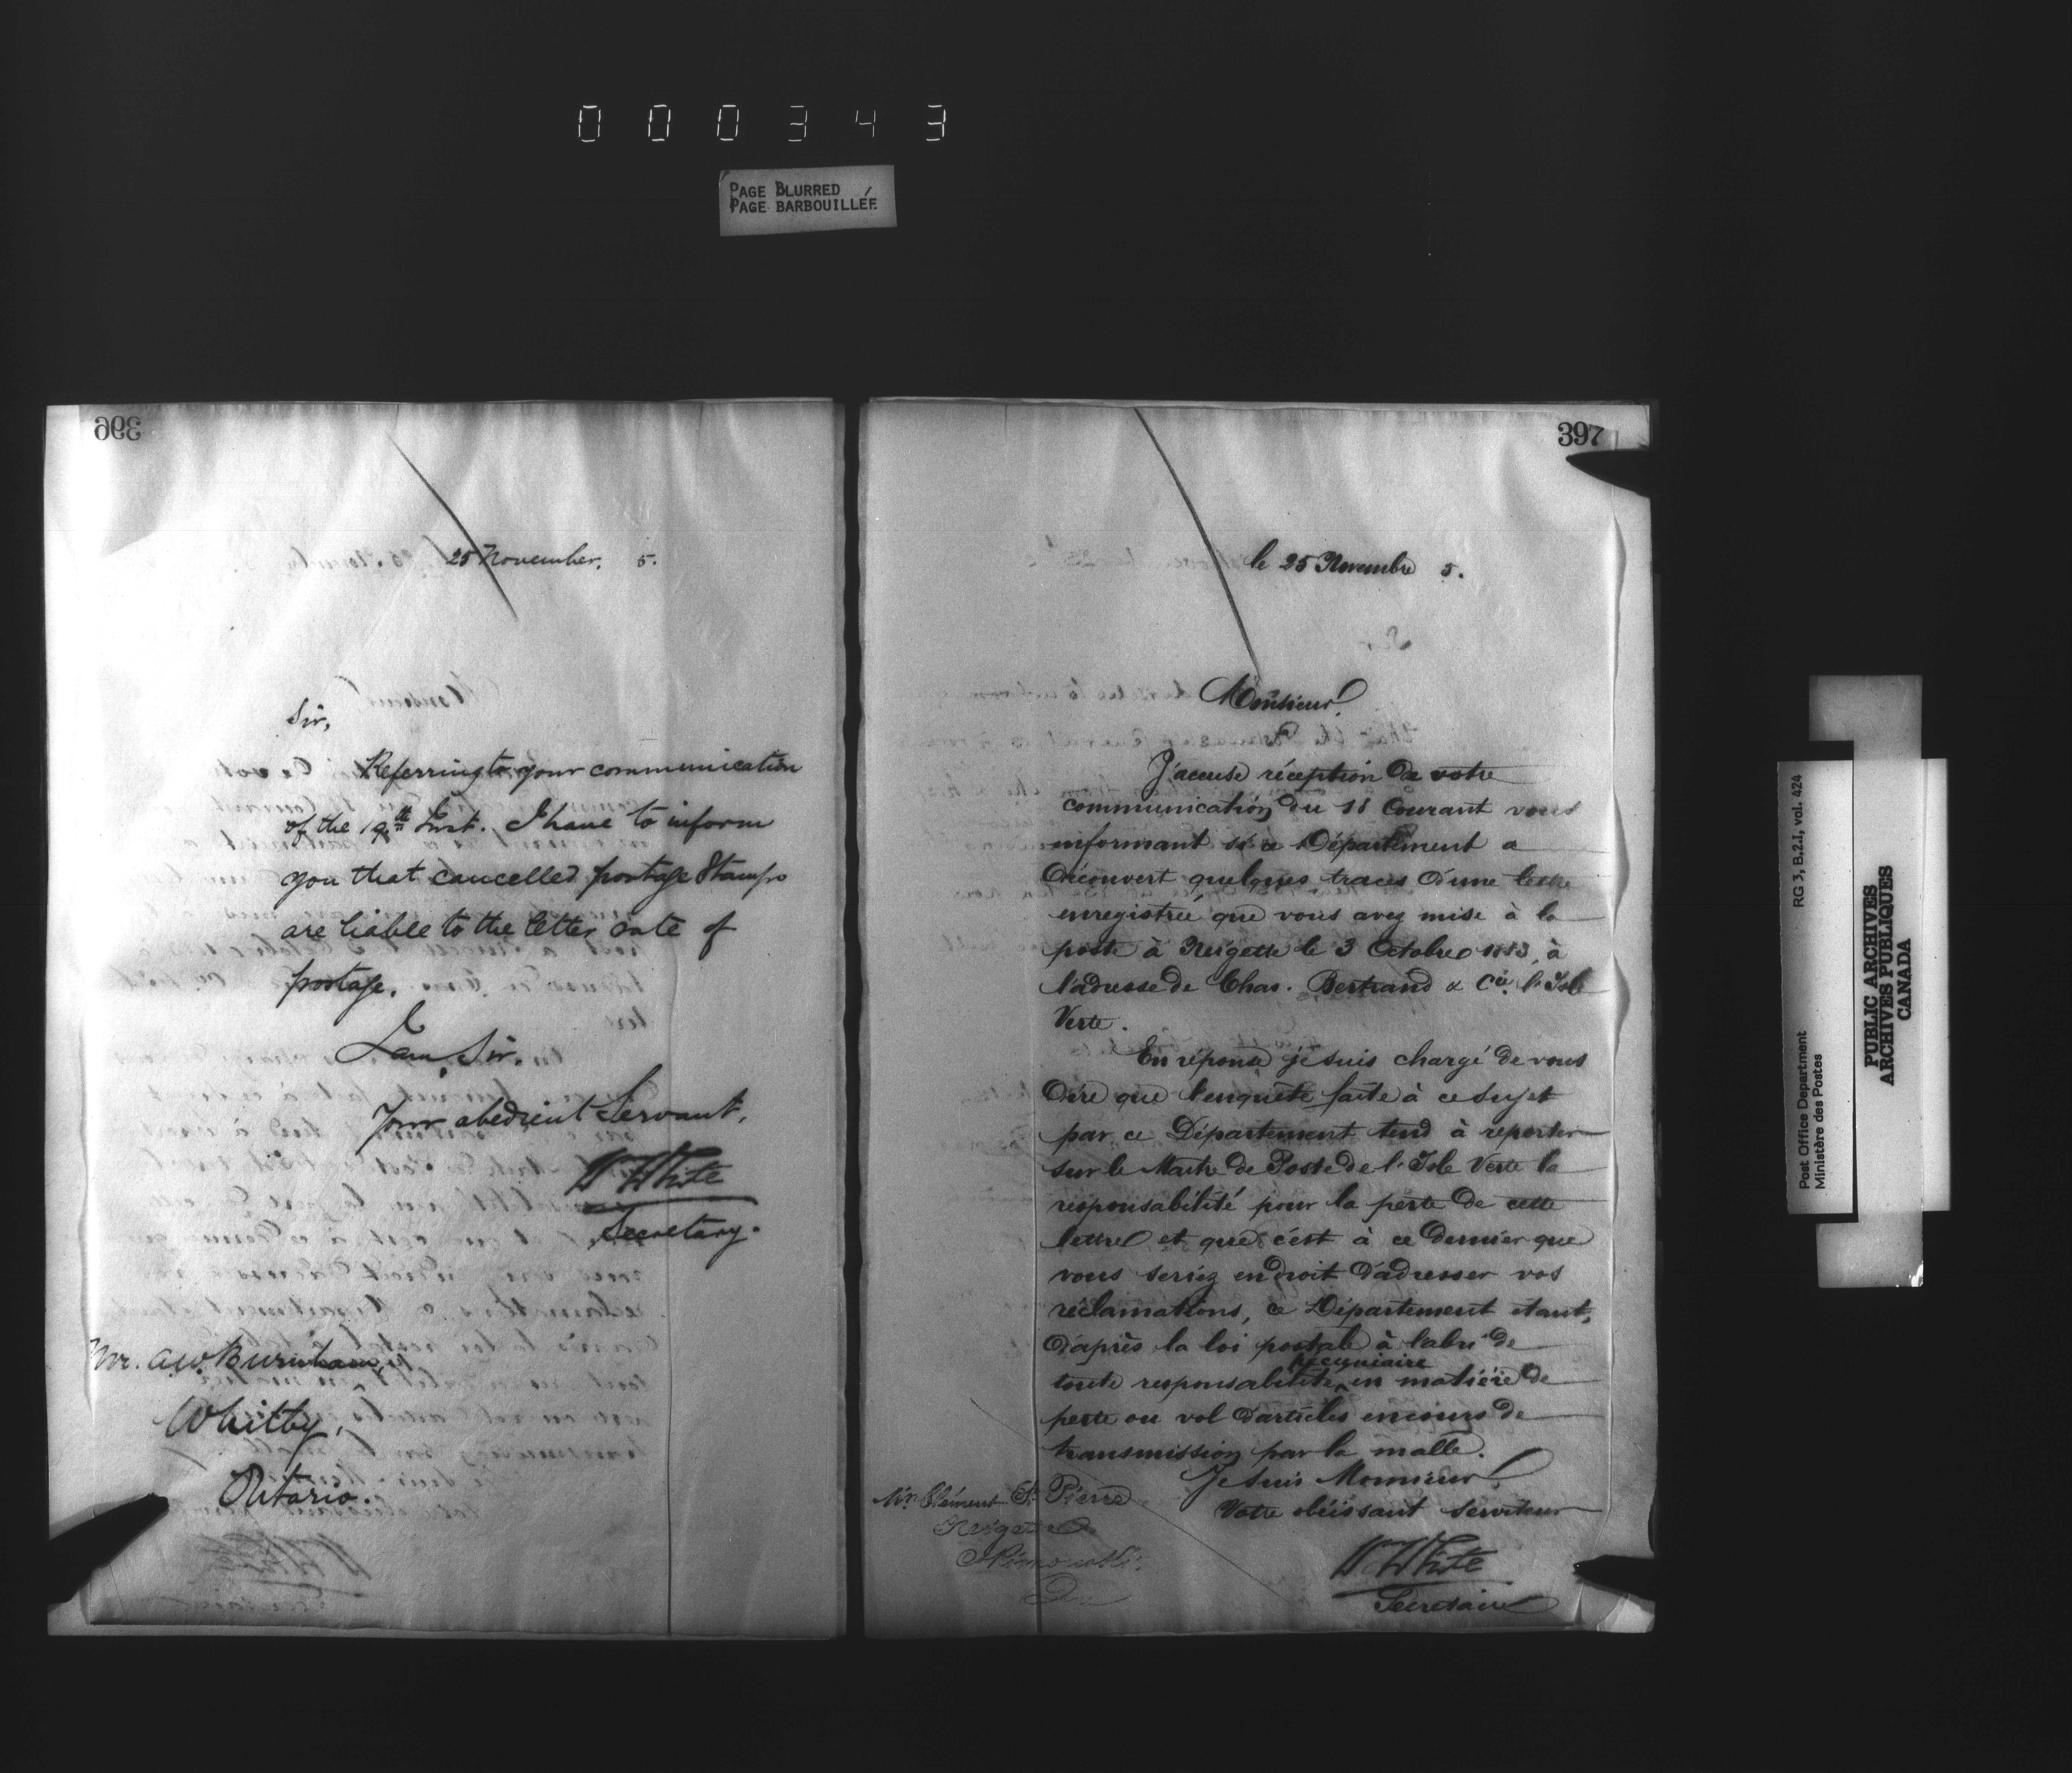 000343
PAGE BLURRED
PAGE BARBOUILLÉE
396
25 November. 5.
Sir,
Referring to your communication
of the 19th Inst. I have to inform
you that cancelled postage Stamps
are liable to the letter rate of
postage.
I am, Sir,
Your obedient Servant,
Wm White
Secretary.
Mr. A.W. Burnham,
Whitby,
Ontario.
397
le 25 Novembre 5.
Monsieur,
J'accuse réception de votre
communication du 18 Courant vous
informant si ce Département a
Découvert quelques traces d'une lettre
enregistrée que vous avez mise à la
poste à Neigette le 3 Octobre 1883, à
l'adresse de Chas. Bertrand & Cie. l'Isle
Verte.
En réponse je suis chargé de vous
Dire que l'enquête faite à ce sujet
par ce Département tend à reporter
sur le Maitre de Poste de l'Isle Verte la
responsabilité pour la perte de cette
lettre et que c'est à ce dernier que
vous seriez en droit d'adresser vos
réclamations, ce Département etant,
d'après la loi postale à l'abri de
toute responsabilité pecuniaire en matière de
perte ou vol d'articles en cours de
transmission par la malle.
Je suis Monsieur,
Votre obéissant serviteur
Wm White
Secretaire
Mr. Clément St Pierre
Neigette
Rimouski.
Q
Post Office Department
Ministère des Postes
RG 3, B.2.1, vol. 424
PUBLIC ARCHIVES
ARCHIVES PUBLIQUES
CANADA